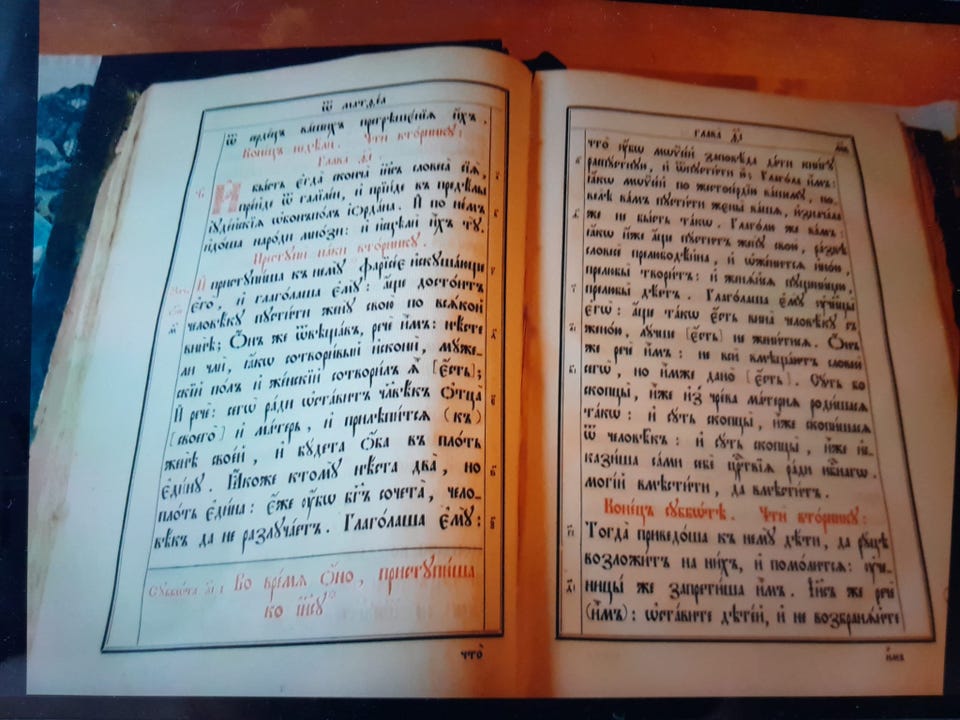 Ѿ МАТѲЕА
ѿ сердецъ вашихъ прегрѣшенїѧ и҆́хъ.
Конецъ недѣли. Чти вторнику:
Глава
И бы́сть є҆гда̀ сконча̀ і҆и҃съ словеса̀ сїѧ̑,
прїи́де ѿ галїле́и, и҆ прїи́де въ предѣ́лы
і҆ꙋдє́йскїѧ ѡ҆б̾ онъпо́лъ і҆ѻрда́на. И҆ по не́мъ
и҆до́ша наро́ди мно́зи: и҆ и҆сцѣлѝ и҆̀хъ тꙋ̀.
Пристꙋпи паки вторникꙋ.
И҆ пристꙋпи́ша къ немꙋ̀ фарїсе́є и҆скꙋша́юще
є҆го̀, и҆ глаго́лаша є҆мꙋ̀: а҆́ще досто́итъ
человѣ́кꙋ пꙋсти́ти женꙋ̀ свою̀ по всѧ́кой
винѣ̀; Ѻ҆́нъ же ѿвѣща́въ, речѐ и҆̀мъ: нѣ́сте
ли члѝ, ꙗ҆́кѡ сотвори́вый и҆сконѝ, мꙋ́же-
скїй по́лъ и҆ же́нскїй сотвори́лъ ѧ҆̀ [є҆́сть];
И҆ речѐ: сегѡ̀ ра́ди ѡ҆ста́витъ чл҃вѣ́къ ѻ҆тца̀
(своего̀) и҆ ма́терь, и҆ прилѣпи́тсѧ (къ)
женѣ̀ свое́й, и҆ бꙋ́дета ѻ҆́ба въ пло́ть
є҆ди́нꙋ. Ꙗ҆́коже ктомꙋ̀ нѣ́ста два̀, но
пло́ть є҆ди́на: є҆́же ᲂу҆̀бѡ бг҃ъ сочета̀, чело-
вѣ́къ да не разлꙋча́етъ. Глаго́лаша є҆мꙋ̀:
Сꙋббѡта Во вре́мѧ ѻ҆́но, пристꙋпи́ша
ко і҆и҃сꙋ
что̀
ГЛАВА
что̀ ᲂу҆̀бѡ мѡѷсе́й заповѣ́да да́ти кни́гꙋ
распꙋ́стнꙋю, и҆ ѿпꙋсти́ти ю҆̀; Глаго́ла и҆̀мъ:
ꙗ҆́кѡ мѡѷсе́й по жестосе́рдїю ва́шемꙋ, по-
велѣ̀ ва́мъ пꙋсти́ти жєны̀ ва́шѧ, и҆знача́ла
же не бы́сть та́кѡ. Глаго́лю же ва́мъ:
ꙗ҆́кѡ и҆́же а҆́ще пꙋ́ститъ женꙋ̀ свою̀, ра́звѣ
словесѐ прелюбодѣ́йна, и҆ ѡ҆же́нитсѧ и҆но́ю,
прелюбы̀ твори́тъ: и҆ женѧ́йсѧ пꙋщени́цею,
прелюбы̀ дѣ́етъ. Глаго́лаша є҆мꙋ̀ ᲂу҆ч҃нцы̀
є҆гѡ̀: а҆́ще та́кѡ є҆́сть вина̀ человѣ́кꙋ съ
жено́ю, лꙋ́чше [є҆́сть] не жени́тисѧ. Ѻ҆́нъ
же речѐ и҆̀мъ: не всѝ вмѣща́ютъ словесѐ
сегѡ̀, но и҆̀мже дано̀ [є҆́сть]. Сꙋ́ть бо
скопцы̀, и҆̀же и҆з̾ чре́ва ма́терня роди́шасѧ
та́кѡ: и҆ сꙋ́ть скопцы̀, и҆̀же скопи́шасѧ
ѿ человѣ́къ: и҆ сꙋ́ть скопцы̀, и҆̀же и҆с-
кази́ша са́ми себѐ црⷭ҇твїѧ ра́ди нбⷭ҇нагѡ.
могі́й вмѣсти́ти, да вмѣсти́тъ.
Коне́цъ сꙋббѡ́тѣ. Чтѝ вто́рникꙋ:
Тогда̀ приведо́ша къ немꙋ̀ дѣ́ти, да рꙋ́цѣ
возложи́тъ на ни́хъ, и҆ помо́литсѧ: ᲂу҆че-
ницы́ же запрети́ша и҆̀мъ. І҆и҃съ же речѐ
(и҆̀мъ): ѡ҆ста́вите дѣте́й, и҆ не возбранѧ́йте
и҆̀мъ